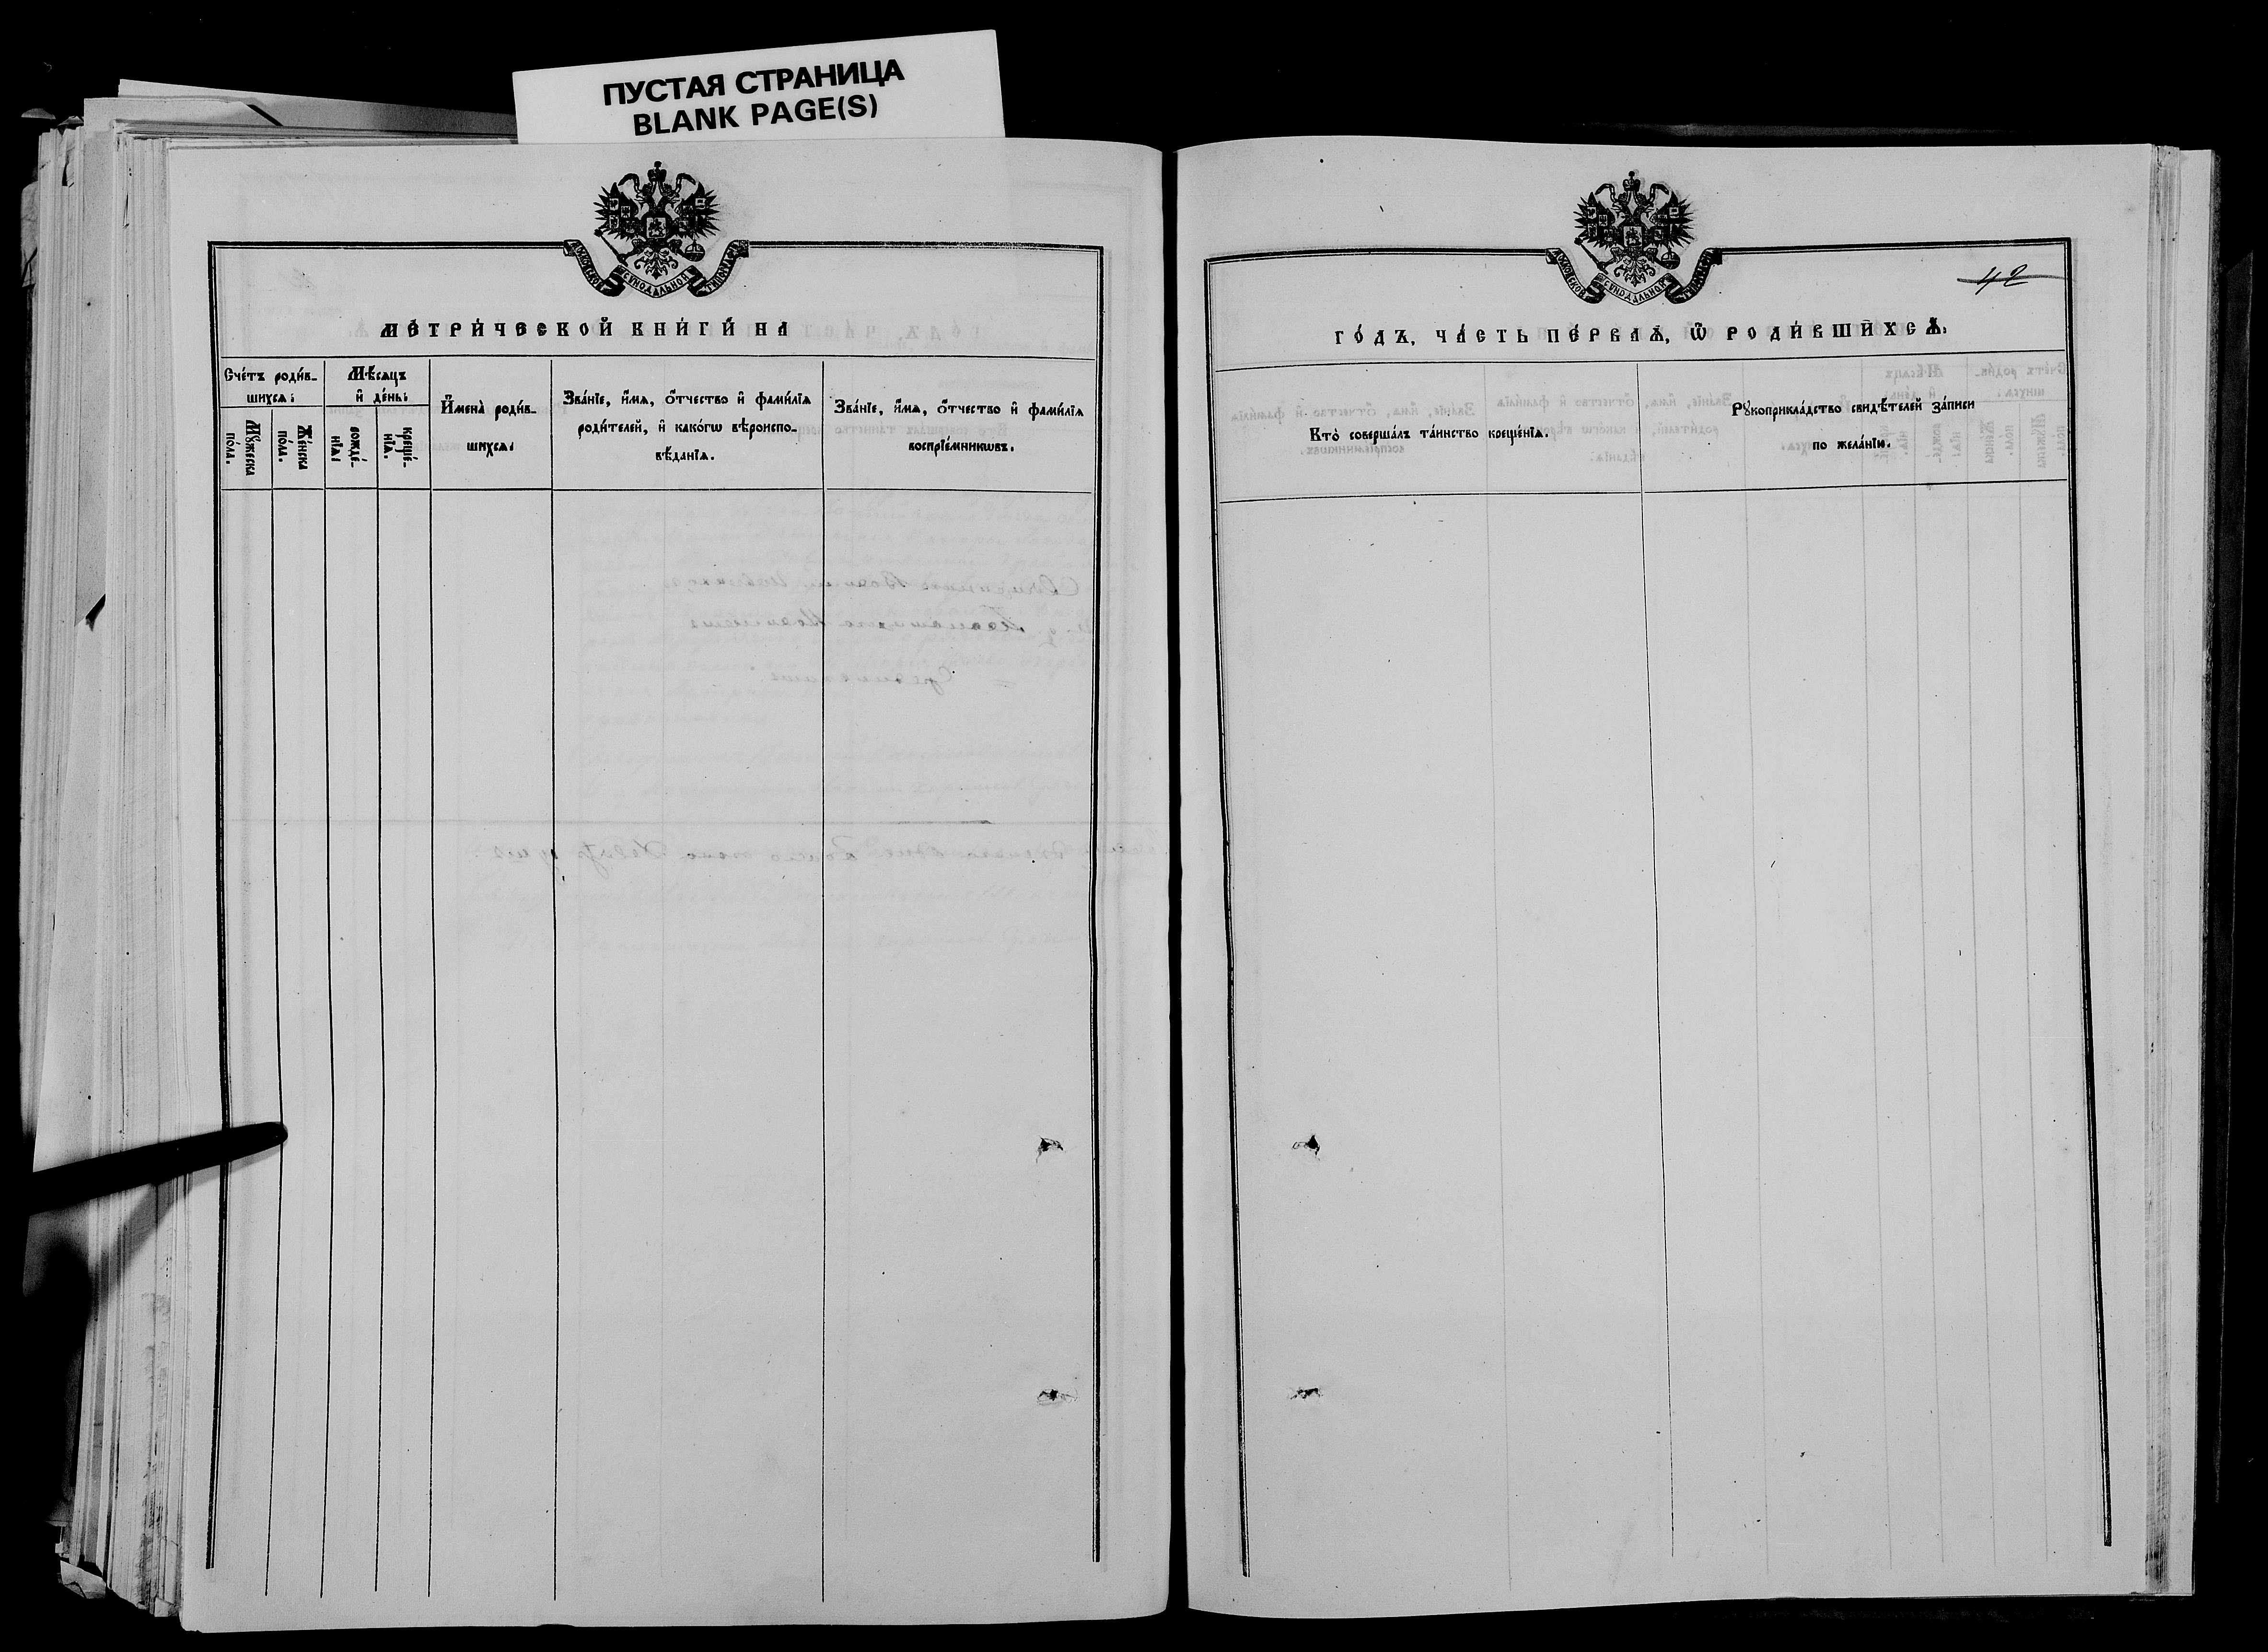 ПУСТАЯ СТРАНИЦА
BLANK PAGE(S)
МОСКОВСКОЙ СѴНОДАЛЬНОЙ ТИПОГРАФІИ
МЕТРИ́ЧЕСКОЙ КНИ́ГИ НА
Сче́тъ роди́в-
шихсѧ:
Мꙋ́жеска
по́ла.
Же́нска
по́ла.
Мѣ́сѧцъ
и҆ де́нь:
рожде́-
нїѧ:
креще́-
нїѧ.
И҆мена̀ роди́в-
шихсѧ:
Зва́нїе, и҆́мѧ, ѻ҆́тчество и҆ фами́лїѧ
роди́телей, и҆ како́гѡ вѣроиспо-
вѣ́данїѧ.
Зва́нїе, и҆́мѧ, ѻ҆́тчество и҆ фами́лїѧ
воспрїе́мникѡвъ.
МОСКОВСКОЙ СѴНОДАЛЬНОЙ ТИПОГРАФІИ
42
ГО́ДЪ, ЧА́СТЬ ПЕ́РВАѦ, Ѽ РОДИ́ВШИХСѦ.
Кто̀ соверша́лъ та́инство креще́нїѧ.
Рꙋкоприкла́дство свидѣ́телей за́писи
по жела́нїи.